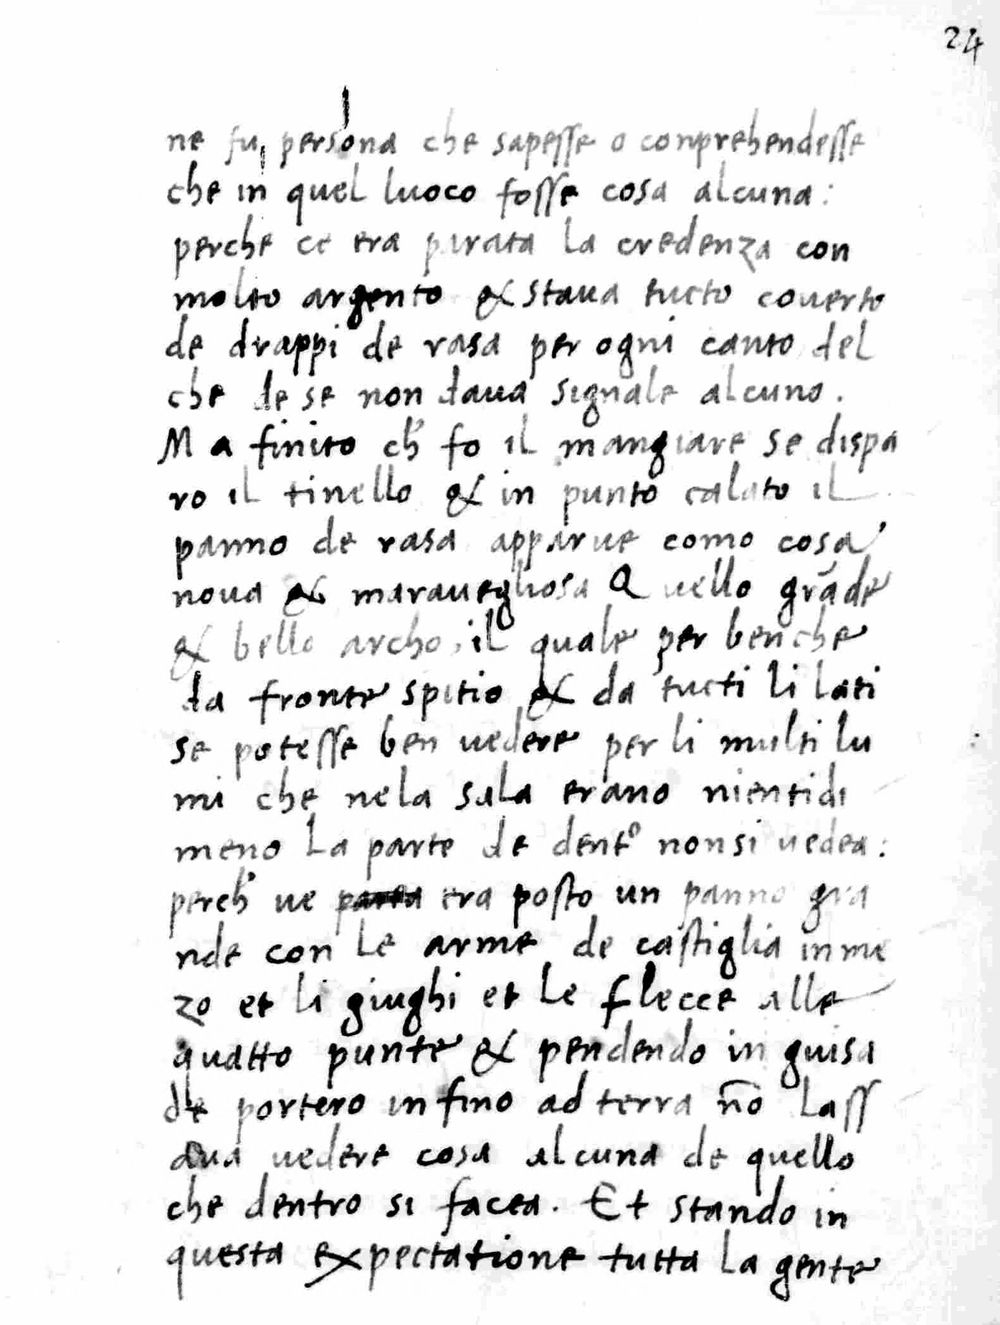 24
ne fu persona che sapesse o conprehendesse
che in quel luoco fosse cosa alcuna:
perche ce era parata la credenza con
molto argento & staua tucto couerto
de drappi de rasa per ogni canto del
che de se non daua signale alcuno.
Ma finito ch' fo il mangiare se dispa
ro il tinello & in punto calato il
panno de rasa apparue como cosa
noua & marauegliosa Quello grāde
& bello archo, il quale per benche
da fronte spitio & da tucti li lati
se potesse ben uedere per li multi lu
mi che nela sala erano nientidi
meno La parte de dentº non si uedea:
perch' ue era posto un panno gra
nde con Le arme de castiglia in me
zo et li giughi et Le flecce alle
quatto punte & pendendo in guisa
de portero infino ad terra nō Lass
aua uedere cosa alcuna de quello
che dentro si facea. Et stando in
questa expectatione tutta La gente